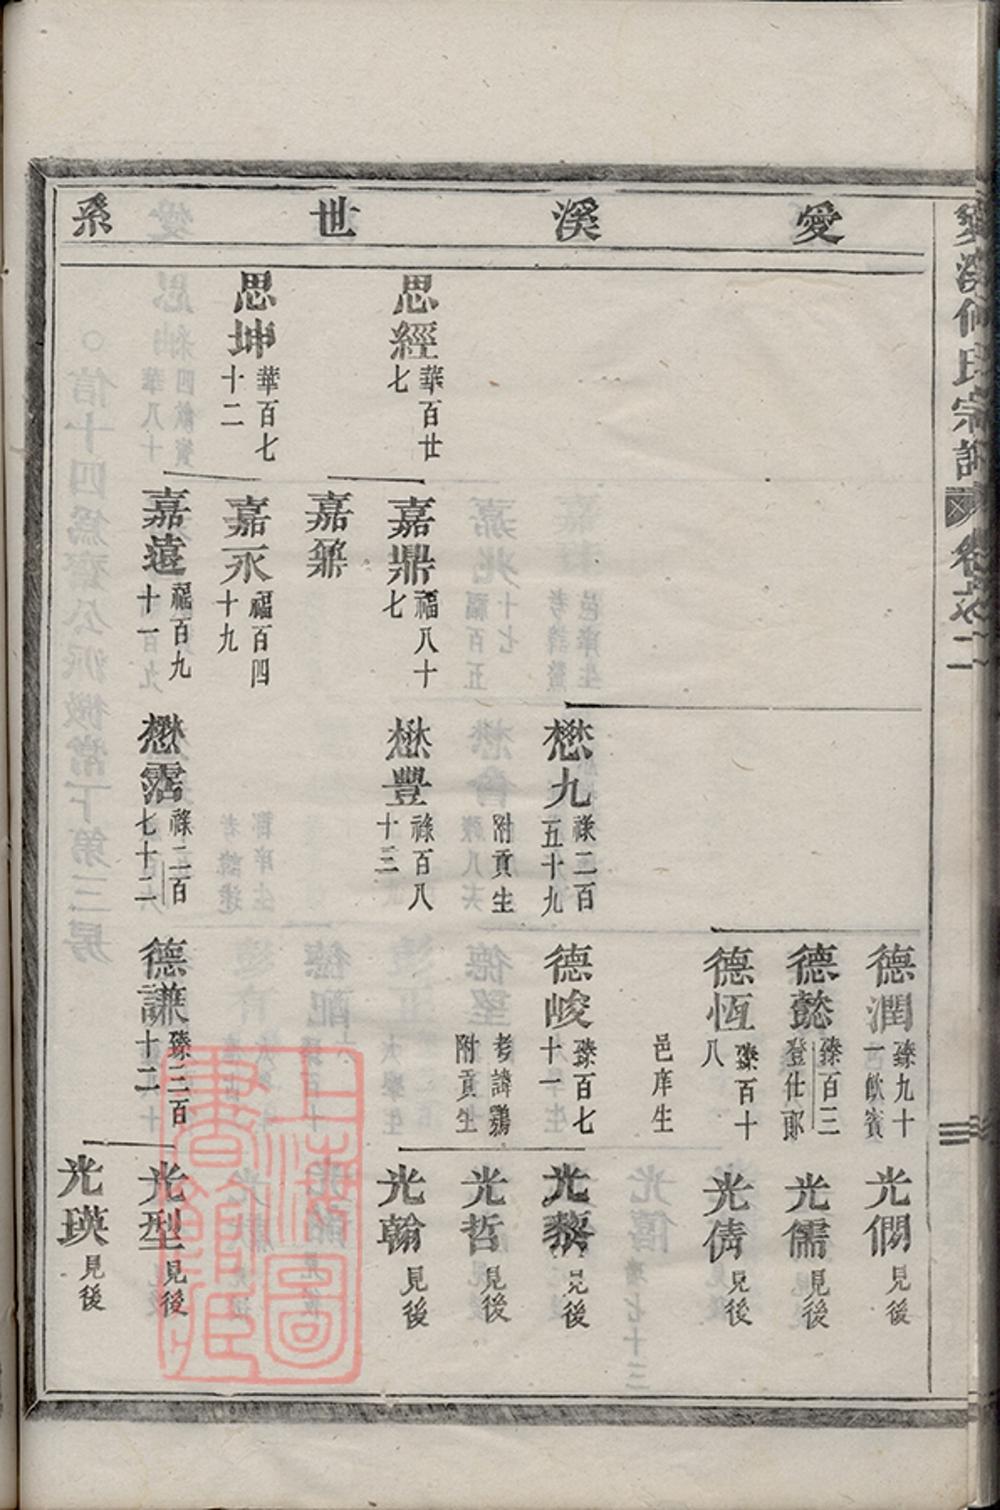 愛溪世系
思經 華百廿七
思坤 華百七十二
嘉鼎 福八十七
嘉鼐
嘉永 福百四十九
嘉遠 福百九十一
懋九 祿二百五十九 附貢生
懋豐 祿百八十三
懋霑 祿二百七十二
德潤 臻九十一 飲賓
德懿 臻百三 登仕郎
德恆 臻百十八 邑庠生
德峻 臻百七十一 考諱鷄 附貢生
德謙 臻二百十二
光僩 見後
光儒 見後
光儔 見後
光黎 見後
光哲 見後
光翰 見後
光型 見後
光瑛 見後
愛溪何氏宗譜 卷之二
上海圖書館藏